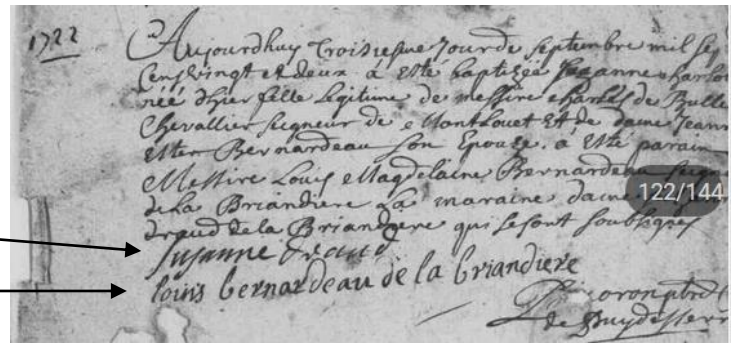 1722
Aujourdhuy Troisiesme Jour de septembre mil sep
Cens vingt et deux à esté baptizée Jeanne charlo
néé d'hier fille Legitime de messire charles de Bulle
Chevallier seigneur de Montlouet Et de dame Jeann
Ester Bernardeau son Epouze. a Esté parain
Messire Louis Magdelaine Bernardeau seigne
de la Briandiere La maraine dame
draud de la Briandiere qui se sont soubsignes
122/144
susanne draud
louis bernardeau de la briandiere
de Puydeserr